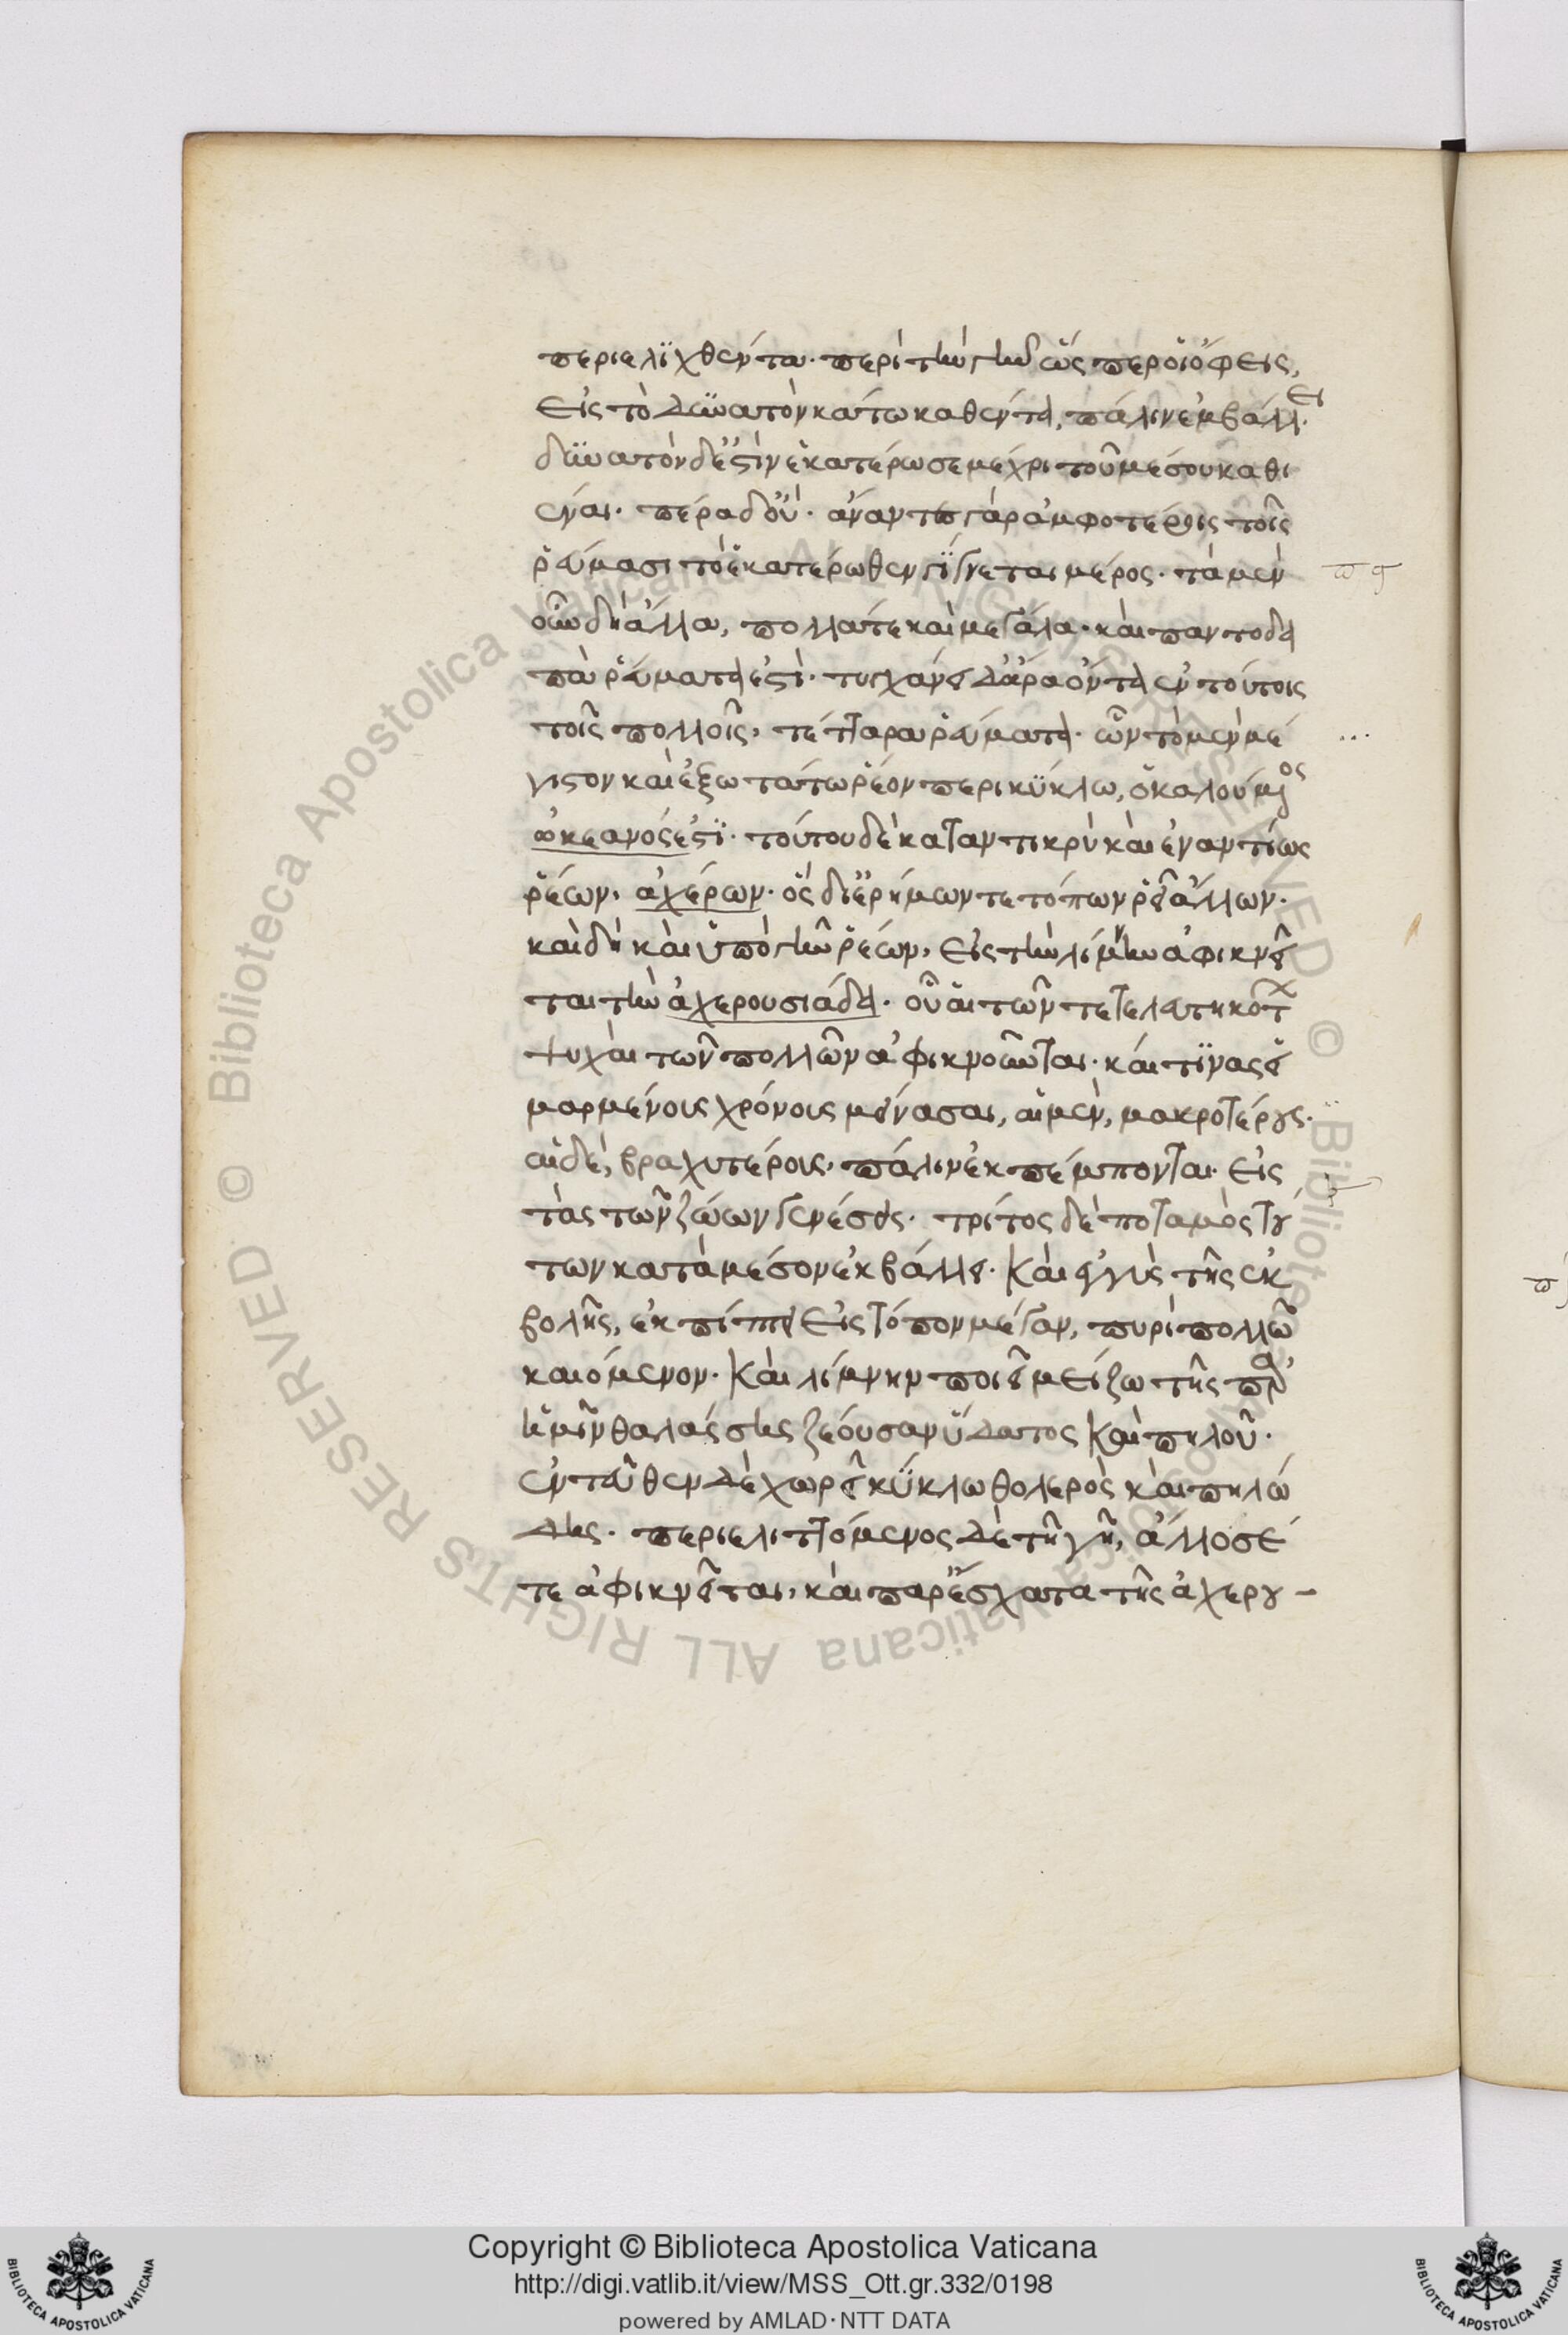 περιελιχθέντα· περὶ τὴν γῆν ὥσπερ οἱ ὄφεις,
εἰς τὸ δυνατὸν κάτω καθέντα, πάλιν ἐμβάλλει·
δυνατὸν δ' ἐστὶν ἑκατέρωσε μέχρι τοῦ μέσου καθι
έναι· πέρα δ' οὔ· ἄναντες γὰρ ἀμφοτέροις τοῖς
ῥεύμασι τὸ ἑκατέρωθεν γίγνεται μέρος· τὰ μὲν
οὖν δὴ ἄλλα, πολλά τε καὶ μεγάλα· καὶ παντοδα
πὰ ῥεύματά ἐστι· τυγχάνει δ' ἄρα ὄντα ἐν τούτοις
τοῖς πολλοῖς, τέτταρα ῥεύματα· ὧν τὸ μὲν μέ
γιστον καὶ ἐξωτάτω ῥέον περὶ κύκλω, ὁ καλούμενος
ὠκεανός ἐστι· τούτου δὲ καταντικρὺ καὶ ἐναντίως
ῥέων, ἀχέρων· ὃς δι' ἐρήμων τε τόπων ῥεῖ ἄλλων·
καὶ δὴ καὶ ὑπὸ γῆν ῥέων, εἰς τὴν λίμνην ἀφικνεῖ
ται τὴν ἀχερουσιάδα· οὗ αἱ τῶν τετελευτηκότων
ψυχαὶ τῶν πολλῶν ἀφικνοῦνται· καί τινας εἱ
μαρμένους χρόνους μείνασαι, αἱ μὲν, μακροτέρους·
αἱ δὲ, βραχυτέρους, πάλιν ἐκπέμπονται· εἰς
τὰς τῶν ζώων γενέσεις· τρίτος δὲ ποταμὸς τού
των κατὰ μέσον ἐκβάλλει· καὶ ἐγγὺς τῆς ἐκ
βολῆς, ἐκπίπτει εἰς τόπον μέγαν, πυρὶ πολλῶ
καιόμενον· καὶ λίμνην ποιεῖ μείζω τῆς παρ'
ἡμῖν θαλάσσης ζέουσαν ὕδατος καὶ πηλοῦ·
ἐντεῦθεν δὲ χωρεῖ κύκλω θολερὸς καὶ πηλώ
δης· περιελιττόμενος δὲ τῆ γῆ, ἄλλοσέ
τε ἀφικνεῖται, καὶ παρ' ἔσχατα τῆς ἀχερου –
Copyright © Biblioteca Apostolica Vaticana
http://digi.vatlib.it/view/MSS_Ott.gr.332/0198
powered by AMLAD·NTT DATA